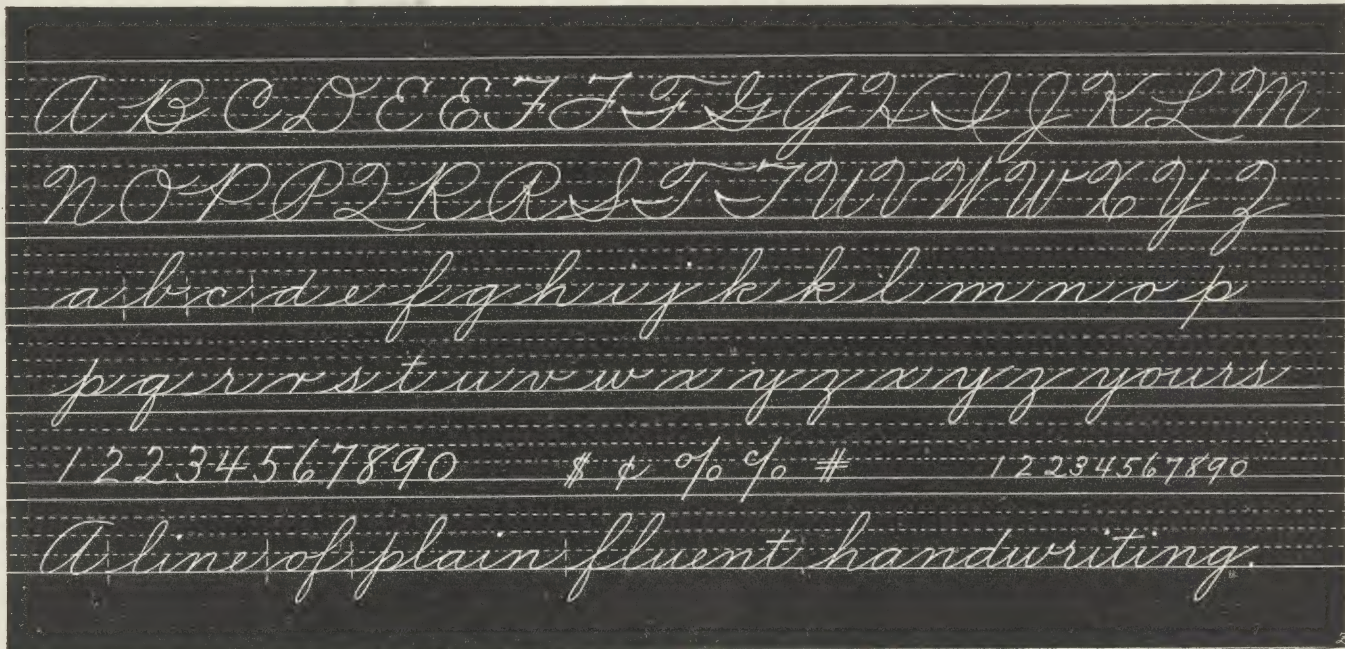 A B C D E E F F F G G H I J K L M
N O P P Q R R S T T U V W W X Y Z
a b c d e f g h i j k k l m n o p
p q r r s t u v w x y z x y z yours
1 2 2 3 4 5 6 7 8 9 0 $ ¢ % % # 1 2 2 3 4 5 6 7 8 9 0
A line of plain fluent handwriting.